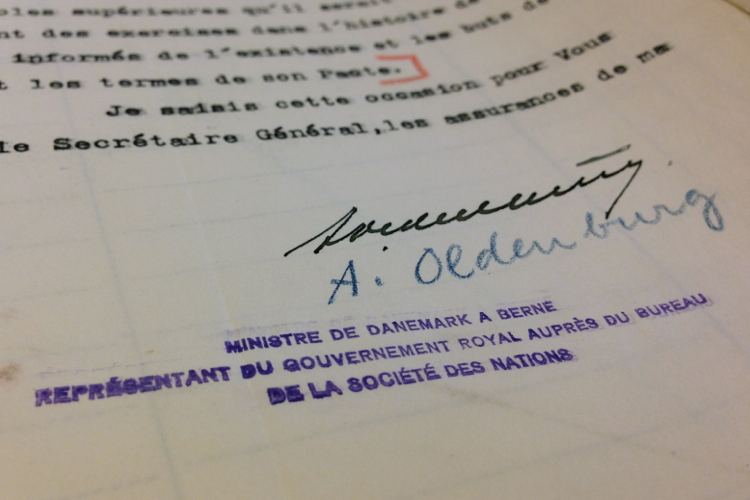 supérieures qu'il serait
nt des exercises dans l'histoire de
informés de l'existence et les buts de
t les termes de son Pacte.
Je saisis cette occasion pour Vous
le Secrétaire Général, les assurances de ma
A. Oldenburg
MINISTRE DE DANEMARK A BERNE
REPRÉSENTANT DU GOUVERNEMENT ROYAL AUPRÈS DU BUREAU
DE LA SOCIÉTÉ DES NATIONS